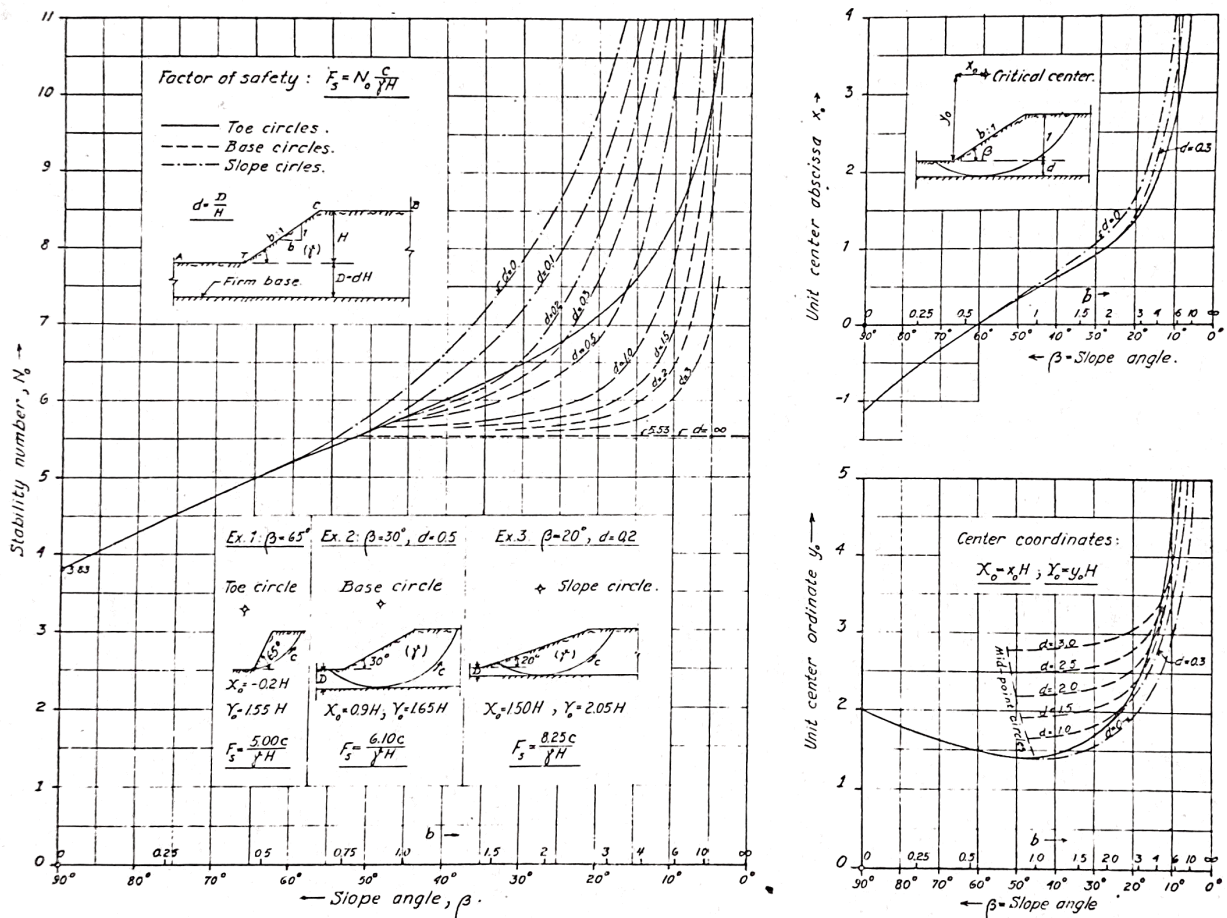 Factor of safety : F_s = N_o c/γH
Toe circles.
Base circles.
Slope cirles.
d = D/H
A
T
C
B
b:1
b
1
(γ)
H
D=dH
Firm base.
Stability number, N_o →
11
10
9
8
7
6
5
4
3
2
1
0
3.83
d=0
d=0.1
d=0.2
d=0.3
d=0.5
d=1.0
d=1.5
d=2
d=3
5.53
d=∞
Ex. 1: β=65°
Toe circle
65°
c
X_o=-0.2H
Y_o=1.55H
F_s=5.00c/γH
Ex. 2: β=30°, d=0.5
Base circle
30°
(γ)
D
c
X_o=0.9H; Y_o=1.65H
F_s=6.10c/γH
Ex. 3 β=20°, d=0.2
Slope circle.
20°
(γ)
D
c
X_o=1.50H , Y_o=2.05H
F_s=8.25c/γH
b →
0 0.25 0.5 0.75 1.0 1.5 2 3 4 6 10 ∞
90° 80° 70° 60° 50° 40° 30° 20° 10° 0°
← Slope angle, β.
Unit center abscissa x_o →
4
3
2
1
0
-1
x_o
Critical center.
y_o
b:1
β
1
d
d=0.3
d=0
b →
0 0.25 0.5 1 1.5 2 3 4 6 10 ∞
90° 80° 70° 60° 50° 40° 30° 20° 10° 0°
← β=Slope angle.
Unit center ordinate y_o →
5
4
3
2
1
0
Center coordinates:
X_o=x_oH ; Y_o=y_oH
d=3.0
d=2.5
d=2.0
d=1.5
d=1.0
d=0
d=0.3
Mid-point circles
b →
0 0.25 0.5 1.0 1.5 2.0 3 4 6 10 ∞
90° 80° 70° 60° 50° 40° 30° 20° 10° 0°
← β=Slope angle